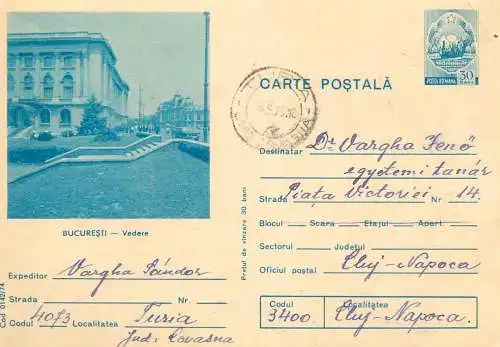 POSTA ROMANA 30 BANI
TURIA
CARTE POȘTALĂ
Destinatar Dr. Vargha Jenő
egyetemi tanár
Strada Piața Victoriei Nr 14.
Blocul Scara Etajul Apart.
Sectorul Județul
Oficiul poștal Cluj-Napoca
Codul Localitatea
3400. Cluj-Napoca.
Prețul de vînzare 30 bani
BUCUREȘTI — Vedere
Expeditor Vargha Sándor
Strada Nr.
Codul 4073 Localitatea Turia
Jud: Covasna
Cod 0142/74